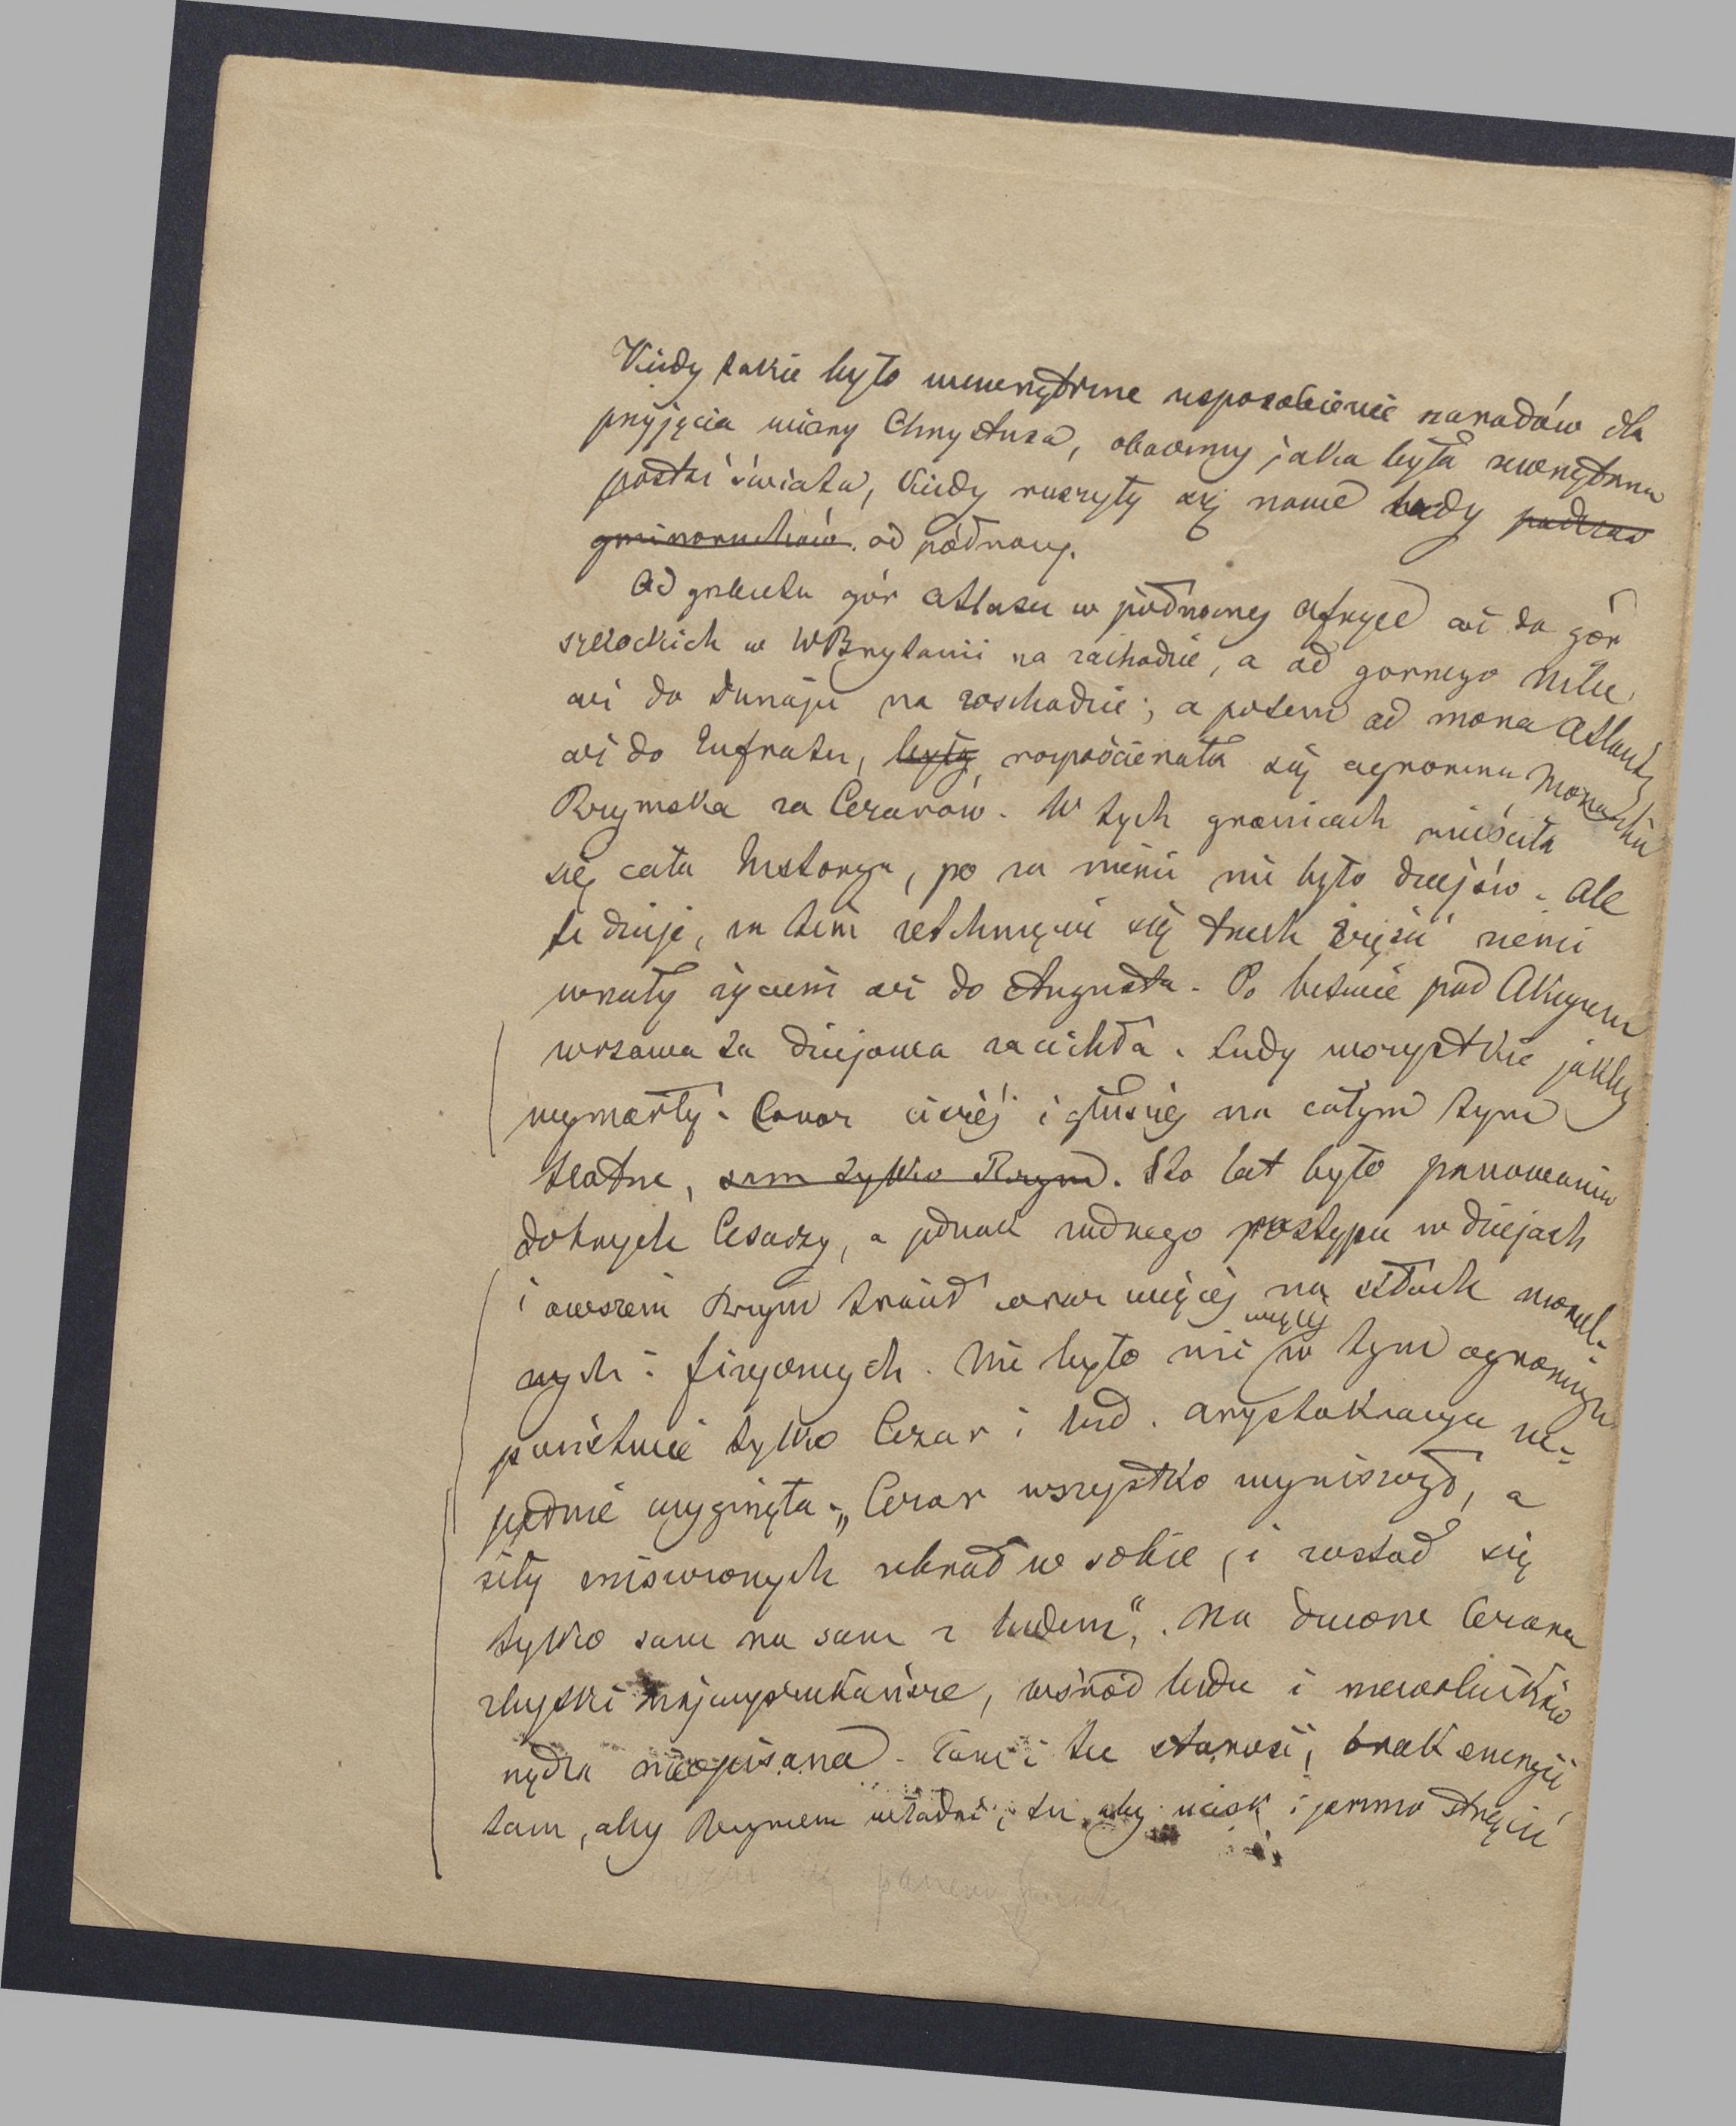 Kiedy takie było wewnętrzne usposobienie narodów dla
przyjęcia wiary Chrystusa, obaczmy jaka była zewnętrzna
postać świata, kiedy ruszyły się nowe ludy podczas
od północy.
Od grzbietu gór Atlasu w północnej Afryce aż do gór
szkockich w WBrytanii na zachodzie, a od gornego Nilu
aż do Dunaju na wschodzie; a potem od morza Atlant.
aż do Eufratu, były rozpościerała się ogromna Monarchia
Rzymska za Cezarów. W tych granicach mieściła
się cała historya, po za niemi nie było dziejów. Ale
te dzieje, za tém zetknięciu się trzech części ziemi
wrzały życiem aż do Augusta. Po bitwie pod Akcyum
wrzawa ta dziejowa zacichła. Ludy wszystkie jakby
wymarły. Coraz ciszéj i głuszej na całym tym
teatrze, sam tylko Rzym. Sto lat było panowania
dobrych Cesarzy, a jednak żadnego postępu w dziejach
i owszem Rzym tracił coraz więcej na siłach moral-
nych i fizycznych. Nie było nic więcej w tym ogromnym
państwie tylko Cezar i lud. Arystokracya zu-
pełnie wyginęła. „Cezar wszystko wyniszczył, a
siły zniszczonych zebrał w sobie, i został się
tylko sam na sam z ludem“. Na dworze Cezara
zbytki najwyszukańsze, wśród ludu i niewolników
nędza nieopisana. Tam i tu starość, brak energii,
tam, aby Rzymem władać, tu aby ucisk i jarzmo strącić